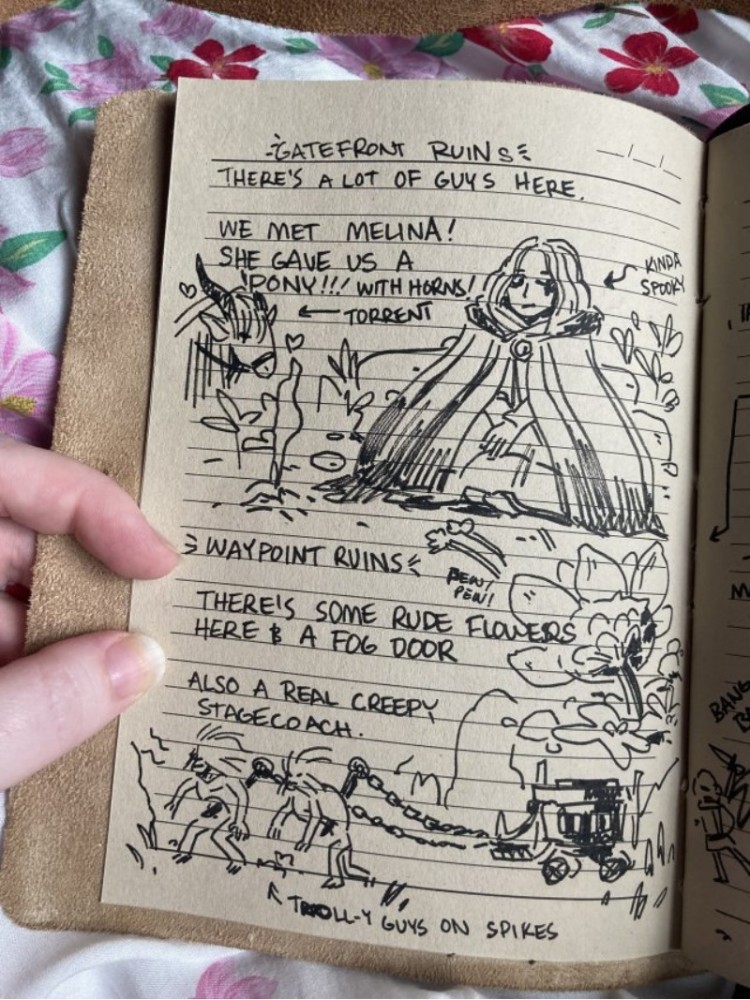 GATEFRONT RUINS
__/__/__
THERE'S A LOT OF GUYS HERE.
WE MET MELINA!
SHE GAVE US A
PONY!!! WITH HORNS!
KINDA
SPOOKY
← TORRENT
WAYPOINT RUINS
PEW!
PEW!
THERE'S SOME RUDE FLOWERS
HERE & A FOG DOOR
ALSO A REAL CREEPY
STAGECOACH.
TROLL-Y GUYS ON SPIKES
BANG